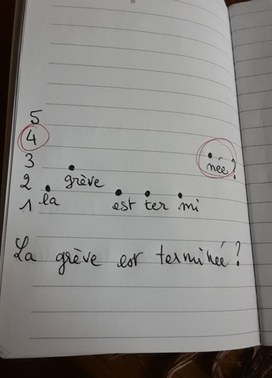 5
4
3
née?
2 grève
1 la est ter mi
La grève est terminée?